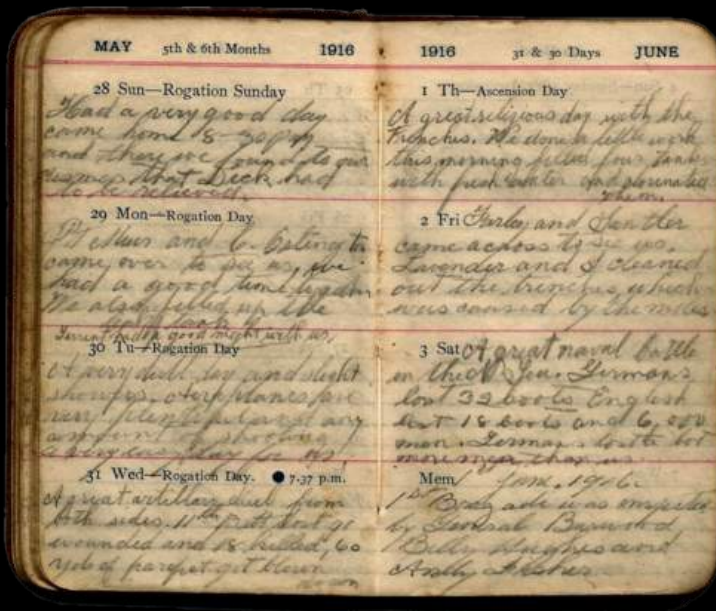 MAY 5th & 6th Months 1916
28 Sun—Rogation Sunday
Had a very good day
came home 8-30 pm
and there we found to our
that Dick had
to be relieved.
29 Mon—Rogation Day
and C.
came over to see us, we
had a good time
We also filled up the
had a good night with us.
30 Tu—Rogation Day
A very dull day and slight
showers. Aeroplanes are
very plentiful and any
amount of shooting
a very easy day for us
31 Wed—Rogation Day. ● 7.37 p.m.
A great artillary duel from
both sides. 11th Batt got 90
wounded and 18 killed, 60
yds of parapet got blown
down
1916 31 & 30 Days JUNE
1 Th—Ascension Day
A great religious day with the
Frenches. We done a little work
this morning filled four tanks
with fresh water and
them.
2 Fri Farley and
came across to see us.
Lavender and I cleaned
out the trenches, which
was caused by the
3 Sat A great naval battle
in the N Sea. Germans
lost 32 boots English
lost 18 boots and 6,000
men. Germans lost a lot
more men than us.
Mem June. 1916.
1st Brigade was inspected
by General Birwood
Billy Hughes and
Andy Fisher